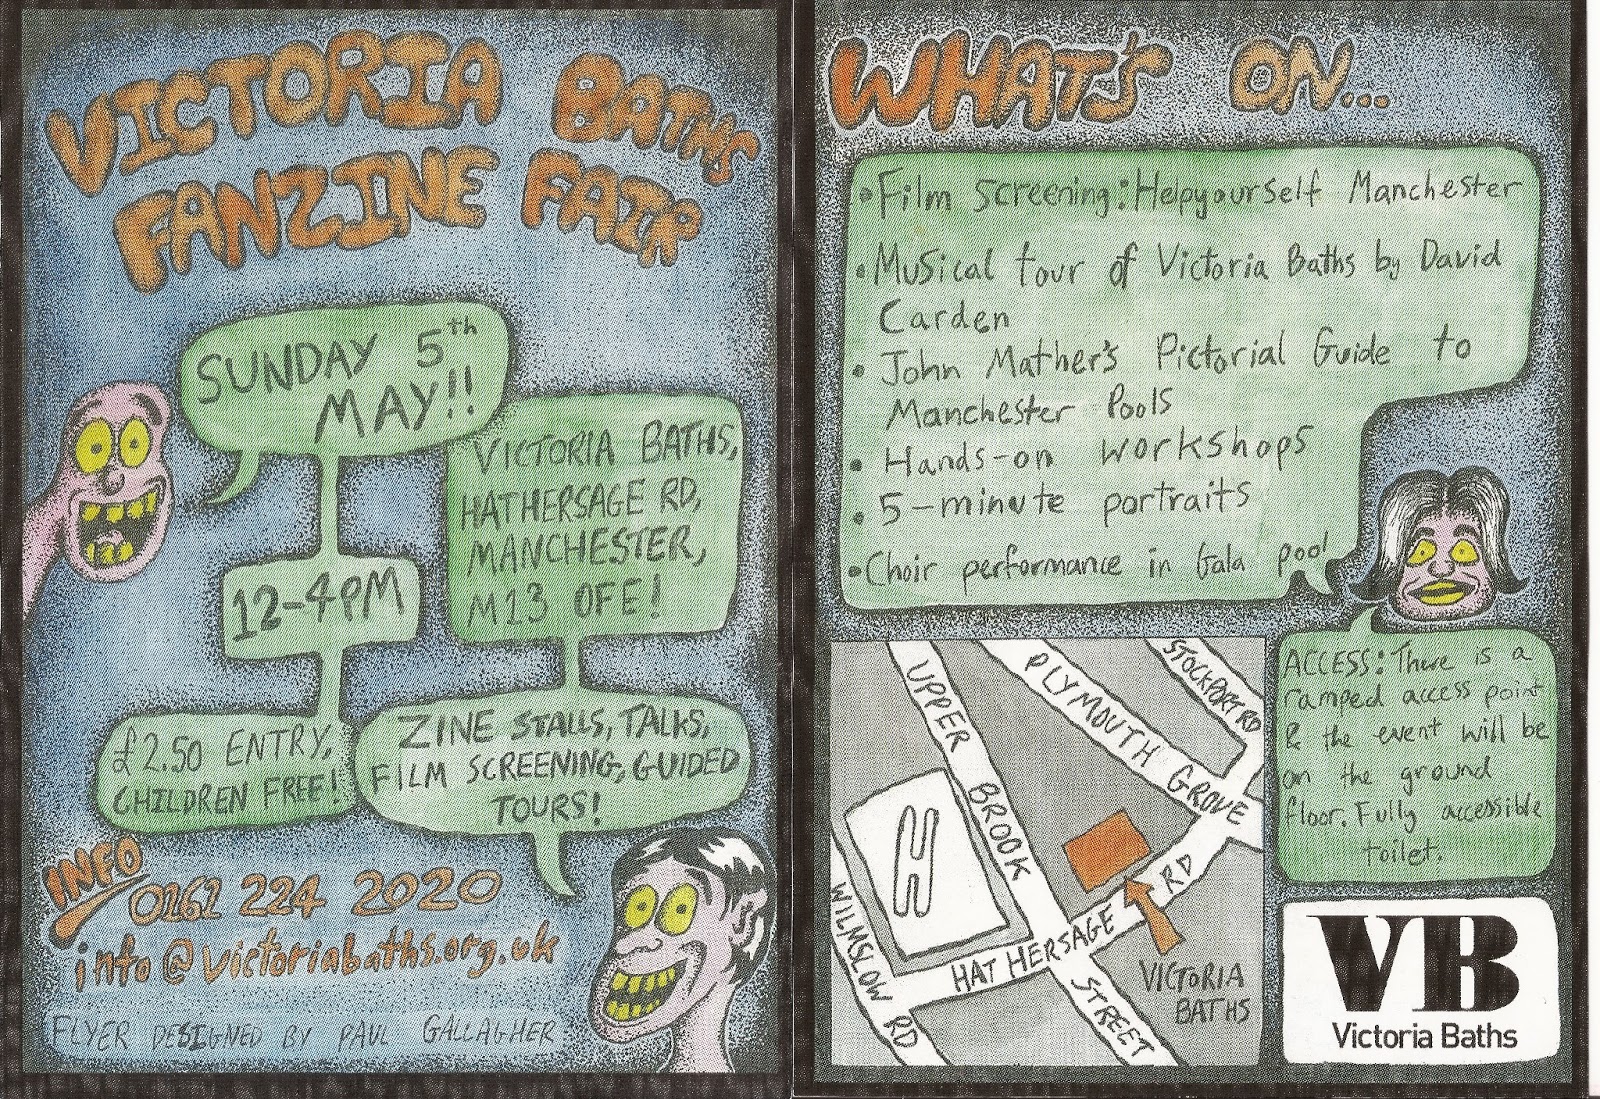 VICTORIA BATHS
FANZINE FAIR
SUNDAY 5th
MAY!!
12-4PM
£2.50 ENTRY,
CHILDREN FREE!
VICTORIA BATHS,
HATHERSAGE RD,
MANCHESTER,
M13 0FE!
ZINE STALLS, TALKS,
FILM SCREENING, GUIDED
TOURS!
INFO
0161 224 2020
info@victoriabaths.org.uk
FLYER DESIGNED BY PAUL GALLAGHER
WHAT'S ON...
• Film Screening: Helpyourself Manchester
• Musical tour of Victoria Baths by David
Carden
• John Mather's Pictorial Guide to
Manchester Pools
• Hands-on workshops
• 5-minute portraits
• Choir performance in Gala pool
ACCESS: There is a
ramped access point
& the event will be
on the ground
floor. Fully accessible
toilet.
UPPER BROOK STREET
PLYMOUTH GROVE
STOCKPORT RD
H
WILMSLOW RD
HATHERSAGE RD
VICTORIA
BATHS
VB
Victoria Baths